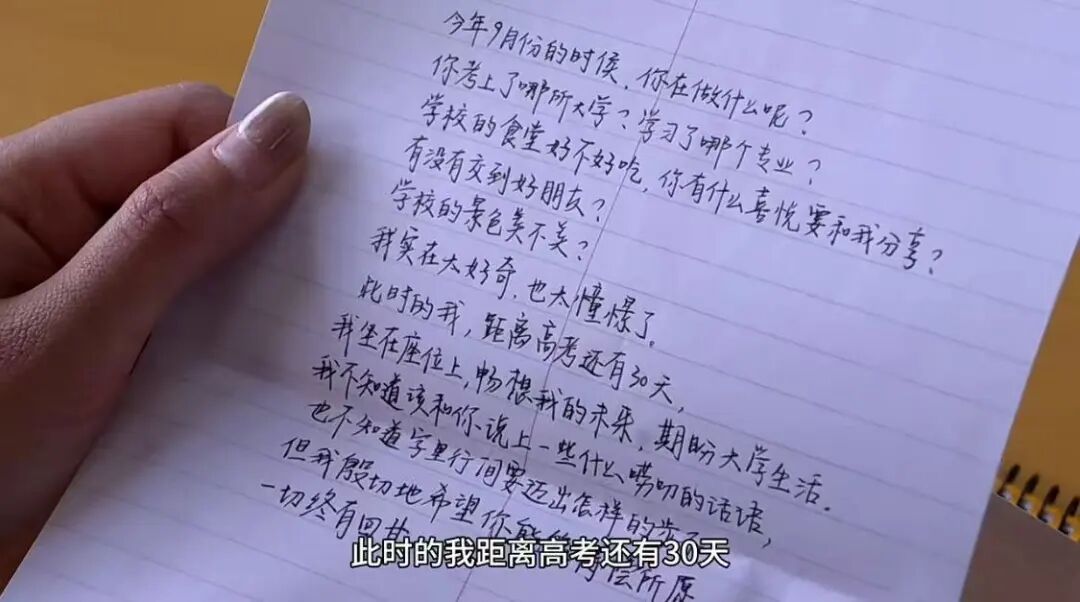 今年9月份的时候，你在做什么呢？
你考上了哪所大学？学习了哪个专业？
学校的食堂好不好吃，你有什么喜悦要和我分享？
有没有交到好朋友？
学校的景色美不美？
我实在太好奇，也太憧憬了。
此时的我，距离高考还有30天，
我坐在座位上，畅想我的未来，期盼大学生活。
我不知道该和你说上一些什么唠叨的话语，
也不知道字里行间要迈出怎样的步
但我殷切地希望你能 得偿所愿
一切终有回
此时的我距离高考还有30天